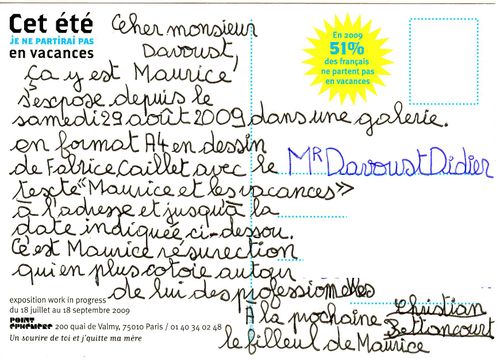 Cet été
JE NE PARTIRAI PAS
en vacances
En 2009
51%
des français
ne partent pas
en vacances
Cher monsieur
Davoust,
Ça y est Maurice
s'expose depuis le
samedi 29 août 2009 dans une galerie.
en format A4 en dessin
de Fabrice Caillet avec le
texte "Maurice et les vacances"
à l'adresse et jusqu'à la
date indiquée ci-dessou.
C'est Maurice résurection
qui en plus cotoie autour
de lui des professionnelles
À la prochaine Christian
Bettoncourt
le filleul de Maurice
Mr Davoust Didier
exposition work in progress
du 18 juillet au 18 septembre 2009
POINT
ÉPHÉMÈRE 200 quai de Valmy, 75010 Paris / 01 40 34 02 48
Un sourire de toi et j'quitte ma mère